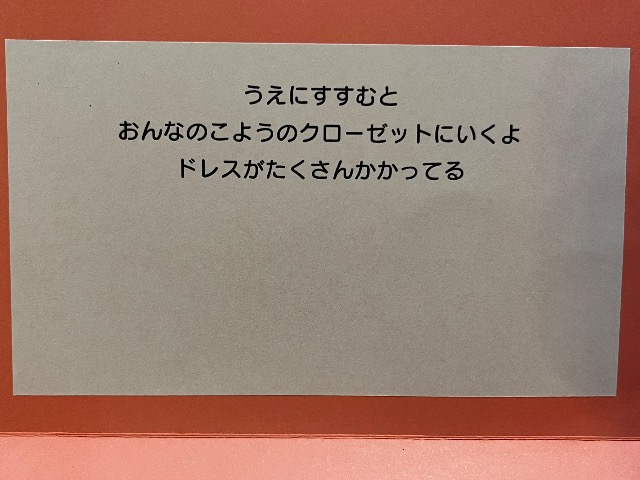 うえにすすむと
おんなのこようのクローゼットにいくよ
ドレスがたくさんかかってる